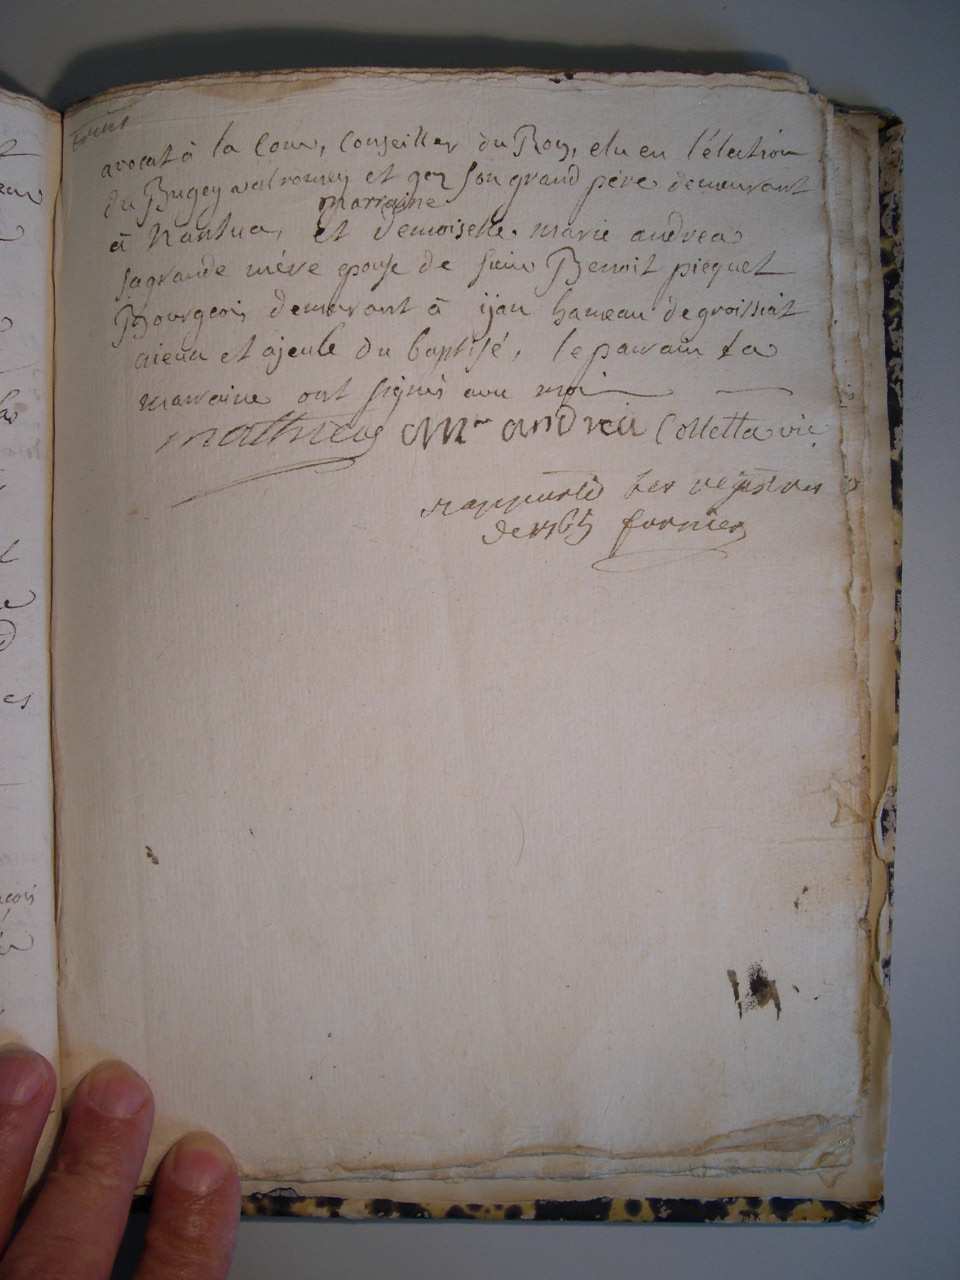 avocat à la Cour, Conseiller du Roy, elu en l'élection
du Bugey valromey et gex son grand père demeurant
marraine
à Nantua, et demoiselle marie andrea
sa grande mére epouse de sieur Benoit picquet
Bourgeois demeurant à ijan hameau de groissiat
aieux et ajeule du baptisé, le parain la
marraine ont signés avec moi
mathieu M andrea Colletta vic
rapporté les registres
de 1765 fornier